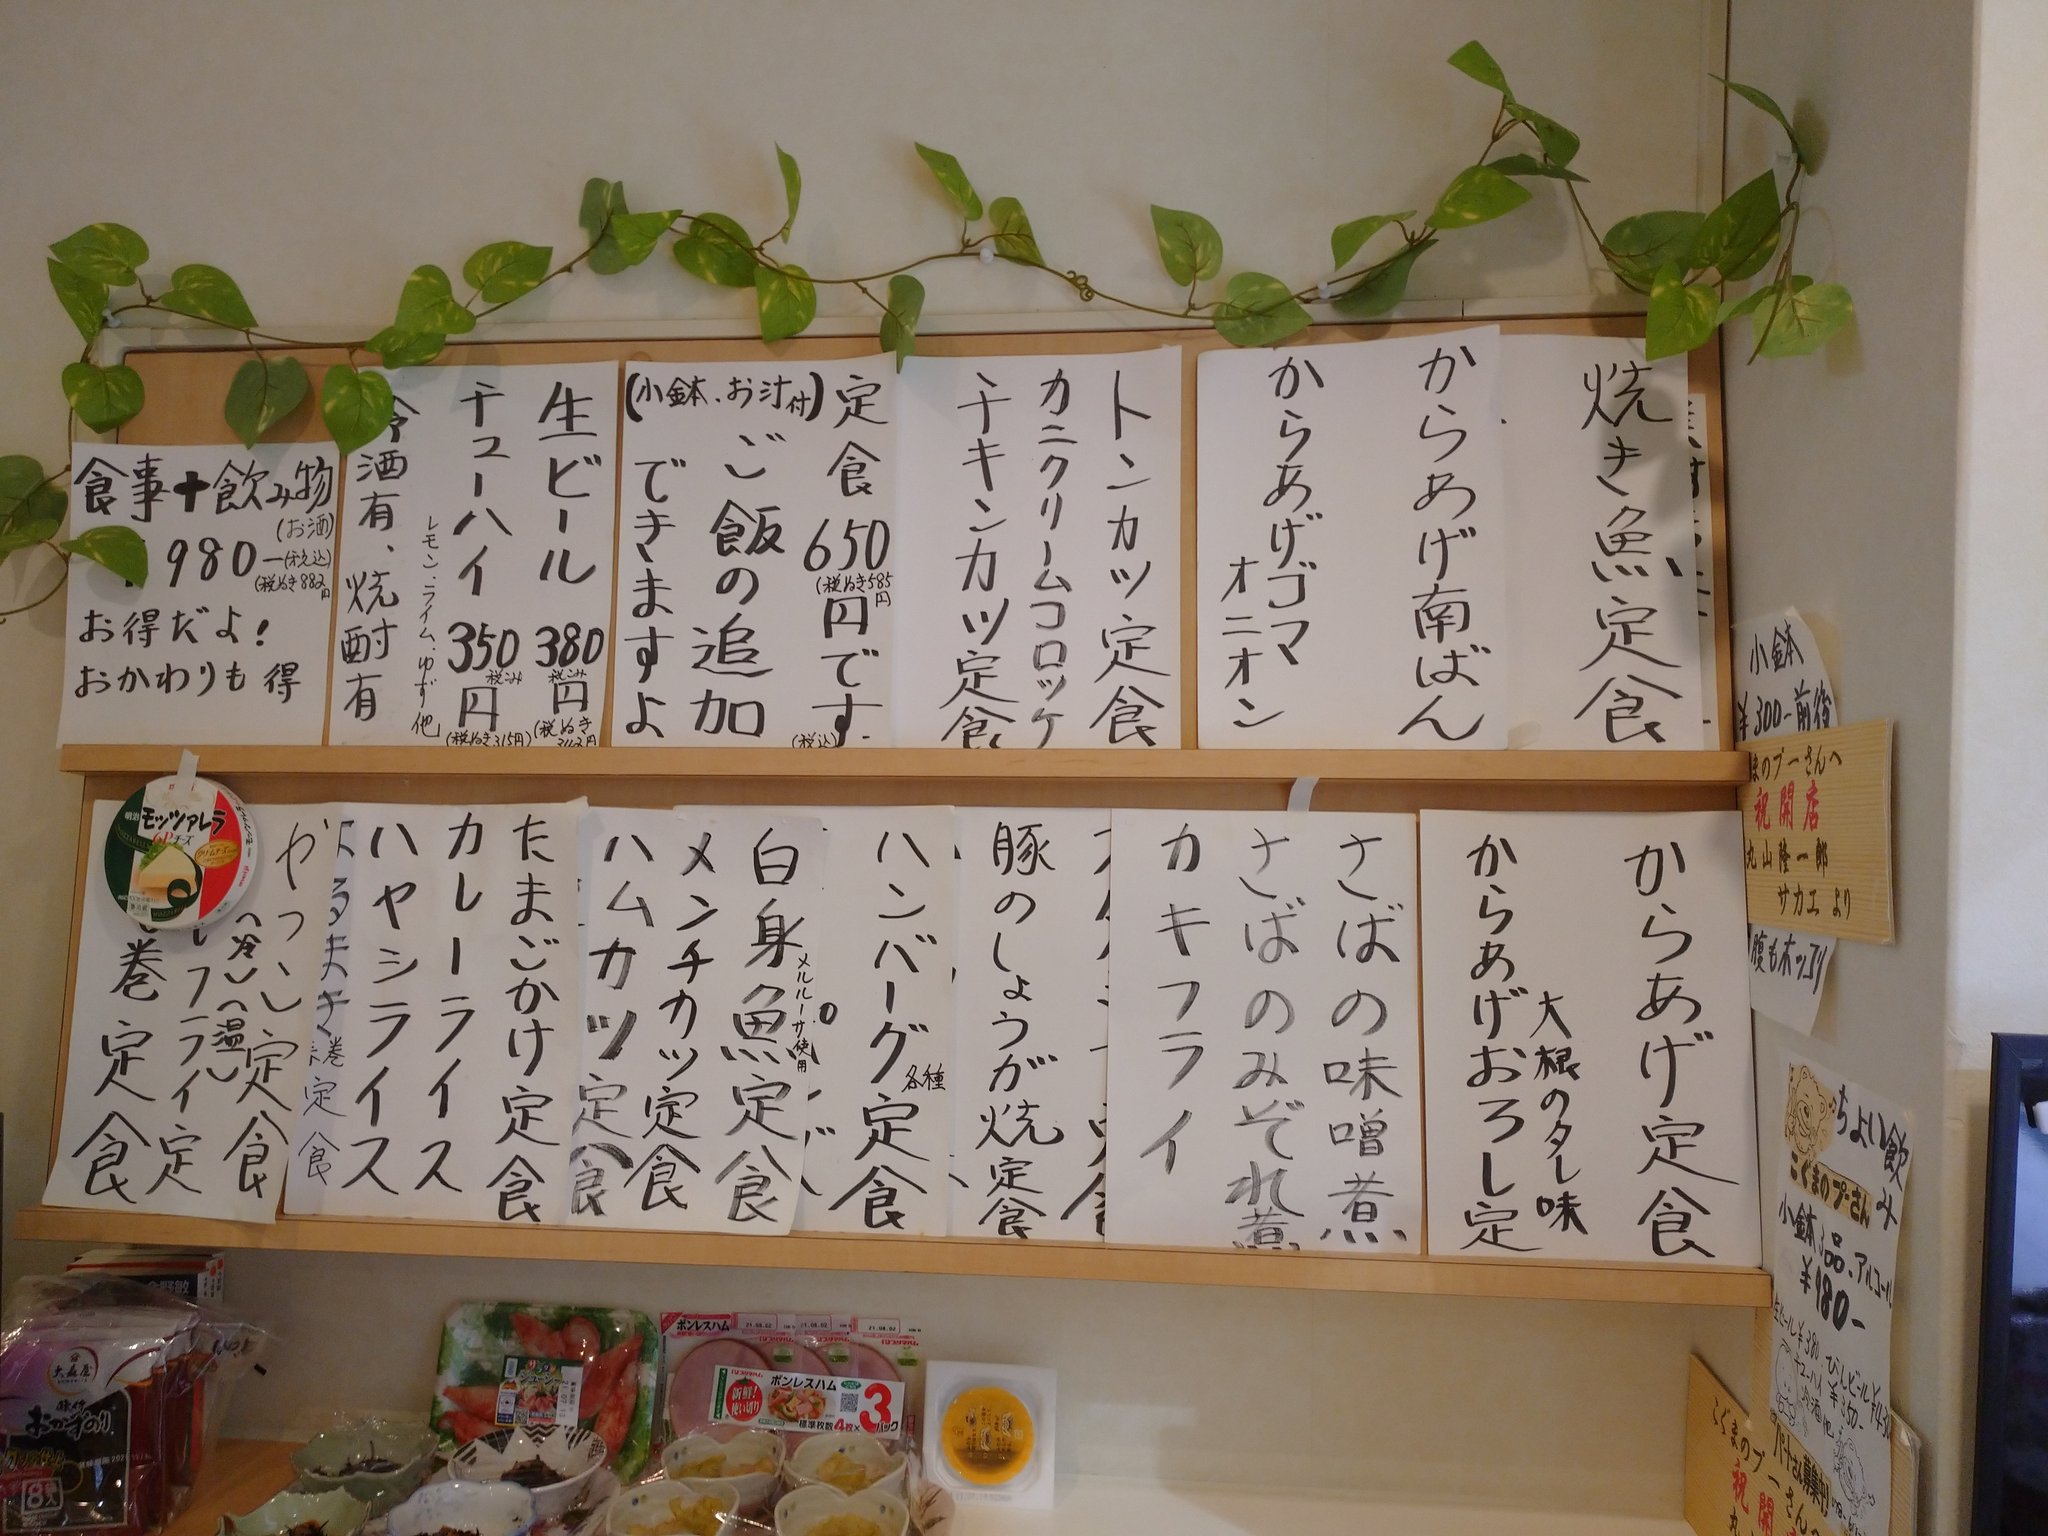 焼き魚定食
からあげ南ばん
からあげゴマ
オニオン
トンカツ定食
カニクリームコロッケ
チキンカツ定食
定食650円です
(税ぬき585円)
(税込)
(小鉢、お汁付)
ご飯の追加
できますよ
生ビール380円
税こみ
(税ぬき
チューハイ350円
税こみ
(税ぬき315円)
レモン、ライム、ゆず他
冷酒有、焼酎有
食事+飲み物
(お酒)
980-(税込)
(税ぬき882円
お得だよ!
おかわりも得
からあげ定食
からあげおろし定
大根のタレ味
さばの味噌煮
さばのみぞれ煮
カキフライ
豚のしょうが焼定食
ハンバーグ定食
各種
白身魚定食
メルルーサ使用
メンチカツ定食
ハムカツ定食
たまごかけ定食
カレーライス
ハヤシライス
やっこ定食
(冷)(温)
フライ定
巻定食
明治
モッツァレラ
6Pチーズ
小鉢
¥300-前後
まのプーさんへ
祝開店
丸山隆一郎
サカエより
ちょい飲み
こぐまのプーさん
小鉢3品、アルコール
¥980-
生ビール¥380
びんビール¥430
チューハイ¥350-
冷酒他
パートさん募集中!
こぐまのプーさんへ
祝開
大森屋
味付
おかずのり
8袋入
ボンレスハム
21.08.02
21.08.02
21.08.02
新鮮!
使い切り
ボンレスハム
標準枚数4枚×3パック